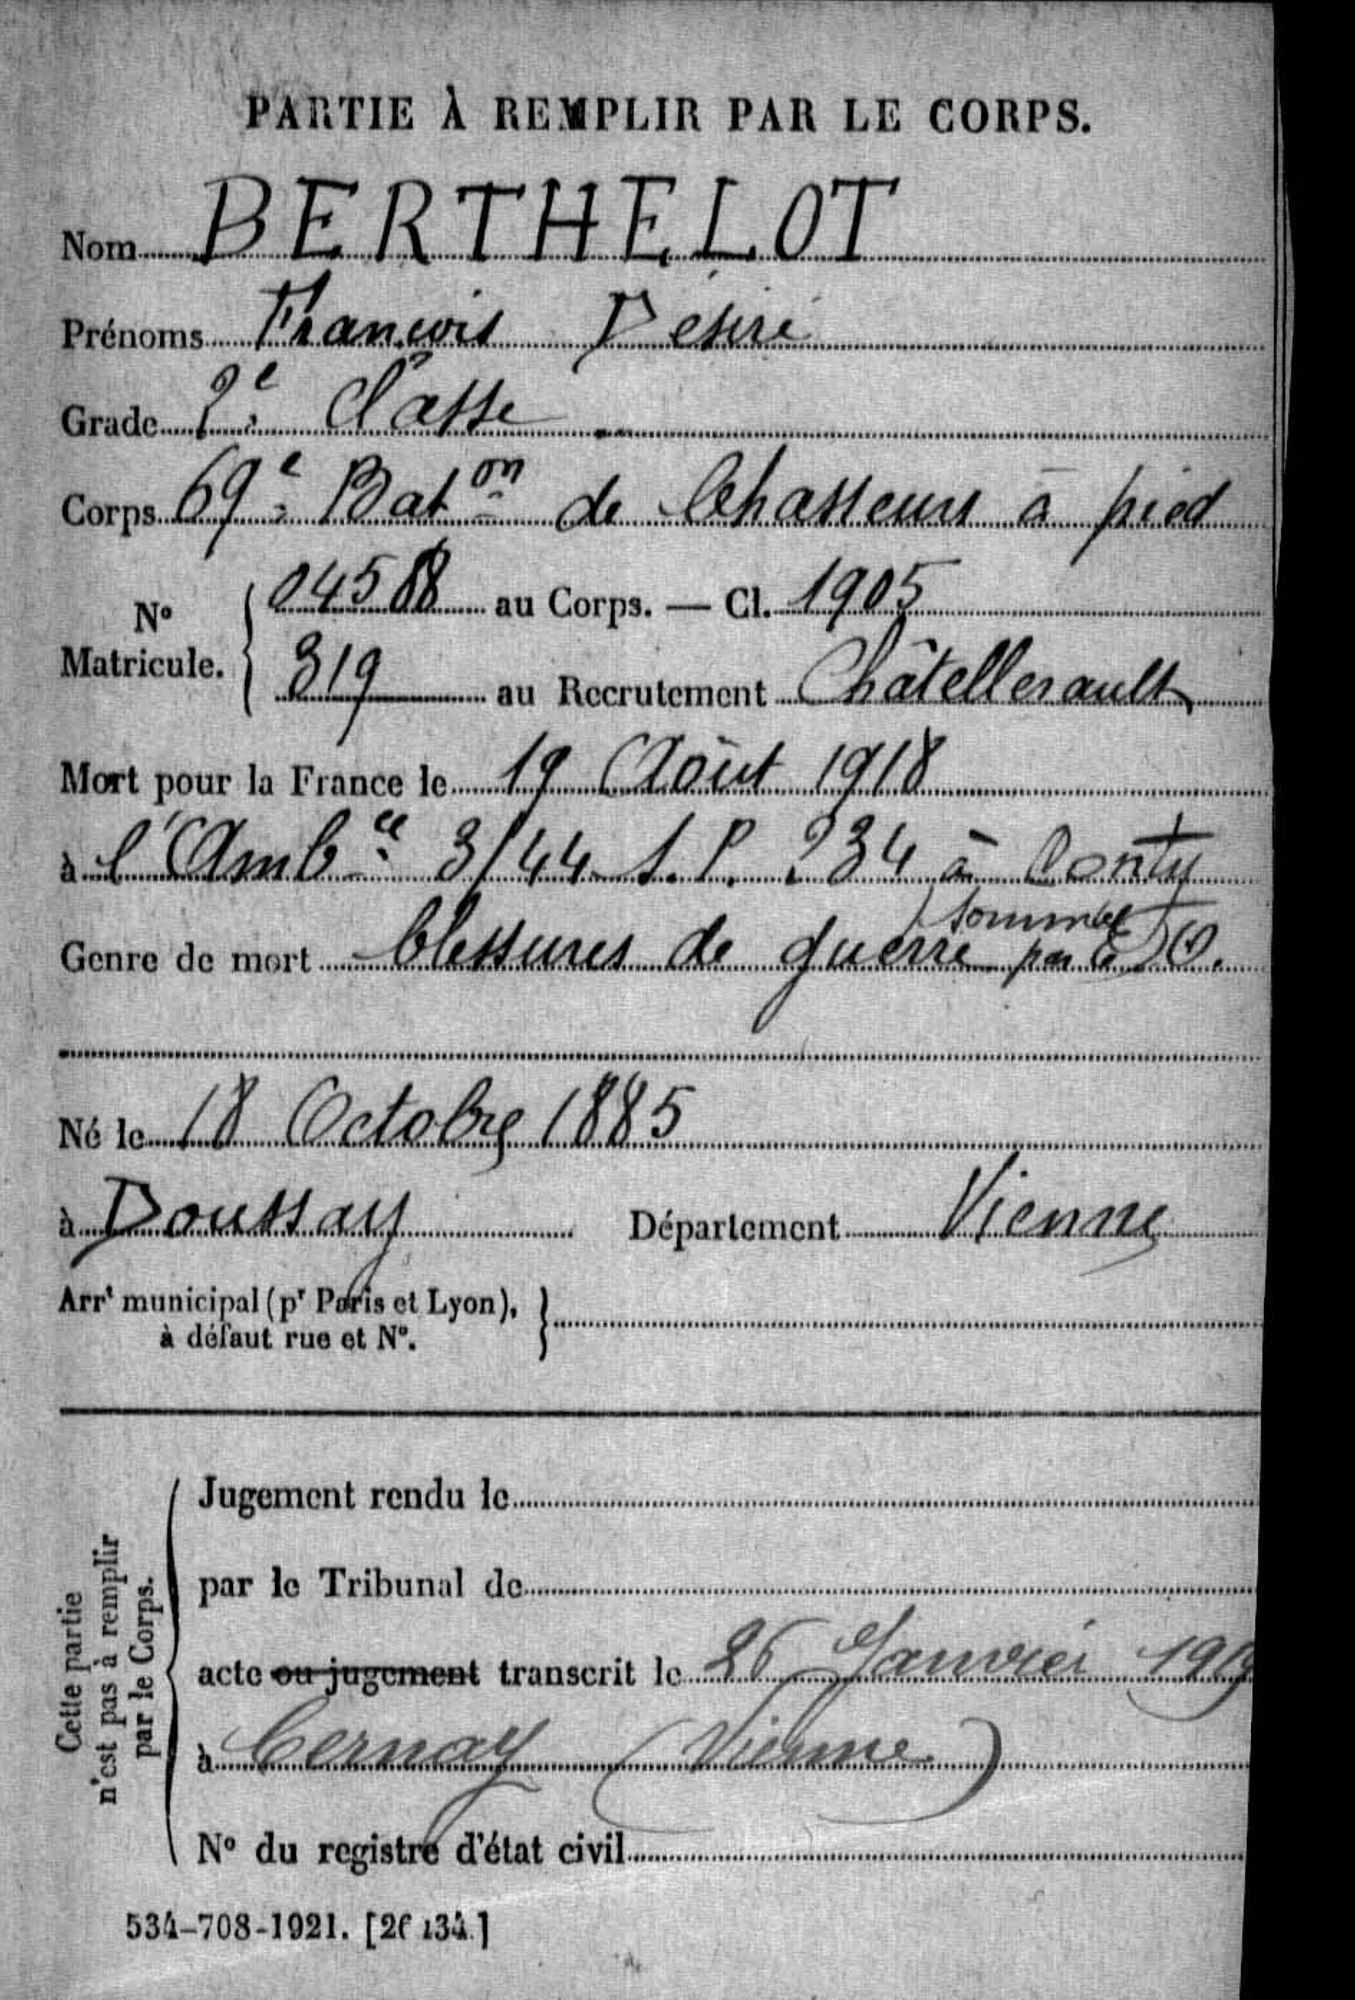 PARTIE À REMPLIR PAR LE CORPS.
Nom BERTHELOT
Prénoms François Désiré
Grade 2e Classe
Corps 69e Baton de Chasseurs à pied
No Matricule. { 04588 au Corps. — Cl. 1905
319 au Recrutement Châtellerault
Mort pour la France le 19 Août 1918
à l'Ambce 3/44 S.P. 234 à Conty
Somme
Genre de mort blessures de guerre par le
Né le 18 Octobre 1885
à Doussay Département Vienne
Arrt municipal (pr Paris et Lyon), }
à défaut rue et No.
Cette partie
n'est pas à remplir
par le Corps.
Jugement rendu le
par le Tribunal de
acte ou jugement transcrit le 26 Janvier 191
à Cernay (Vienne)
No du registre d'état civil
534-708-1921. [26134.]